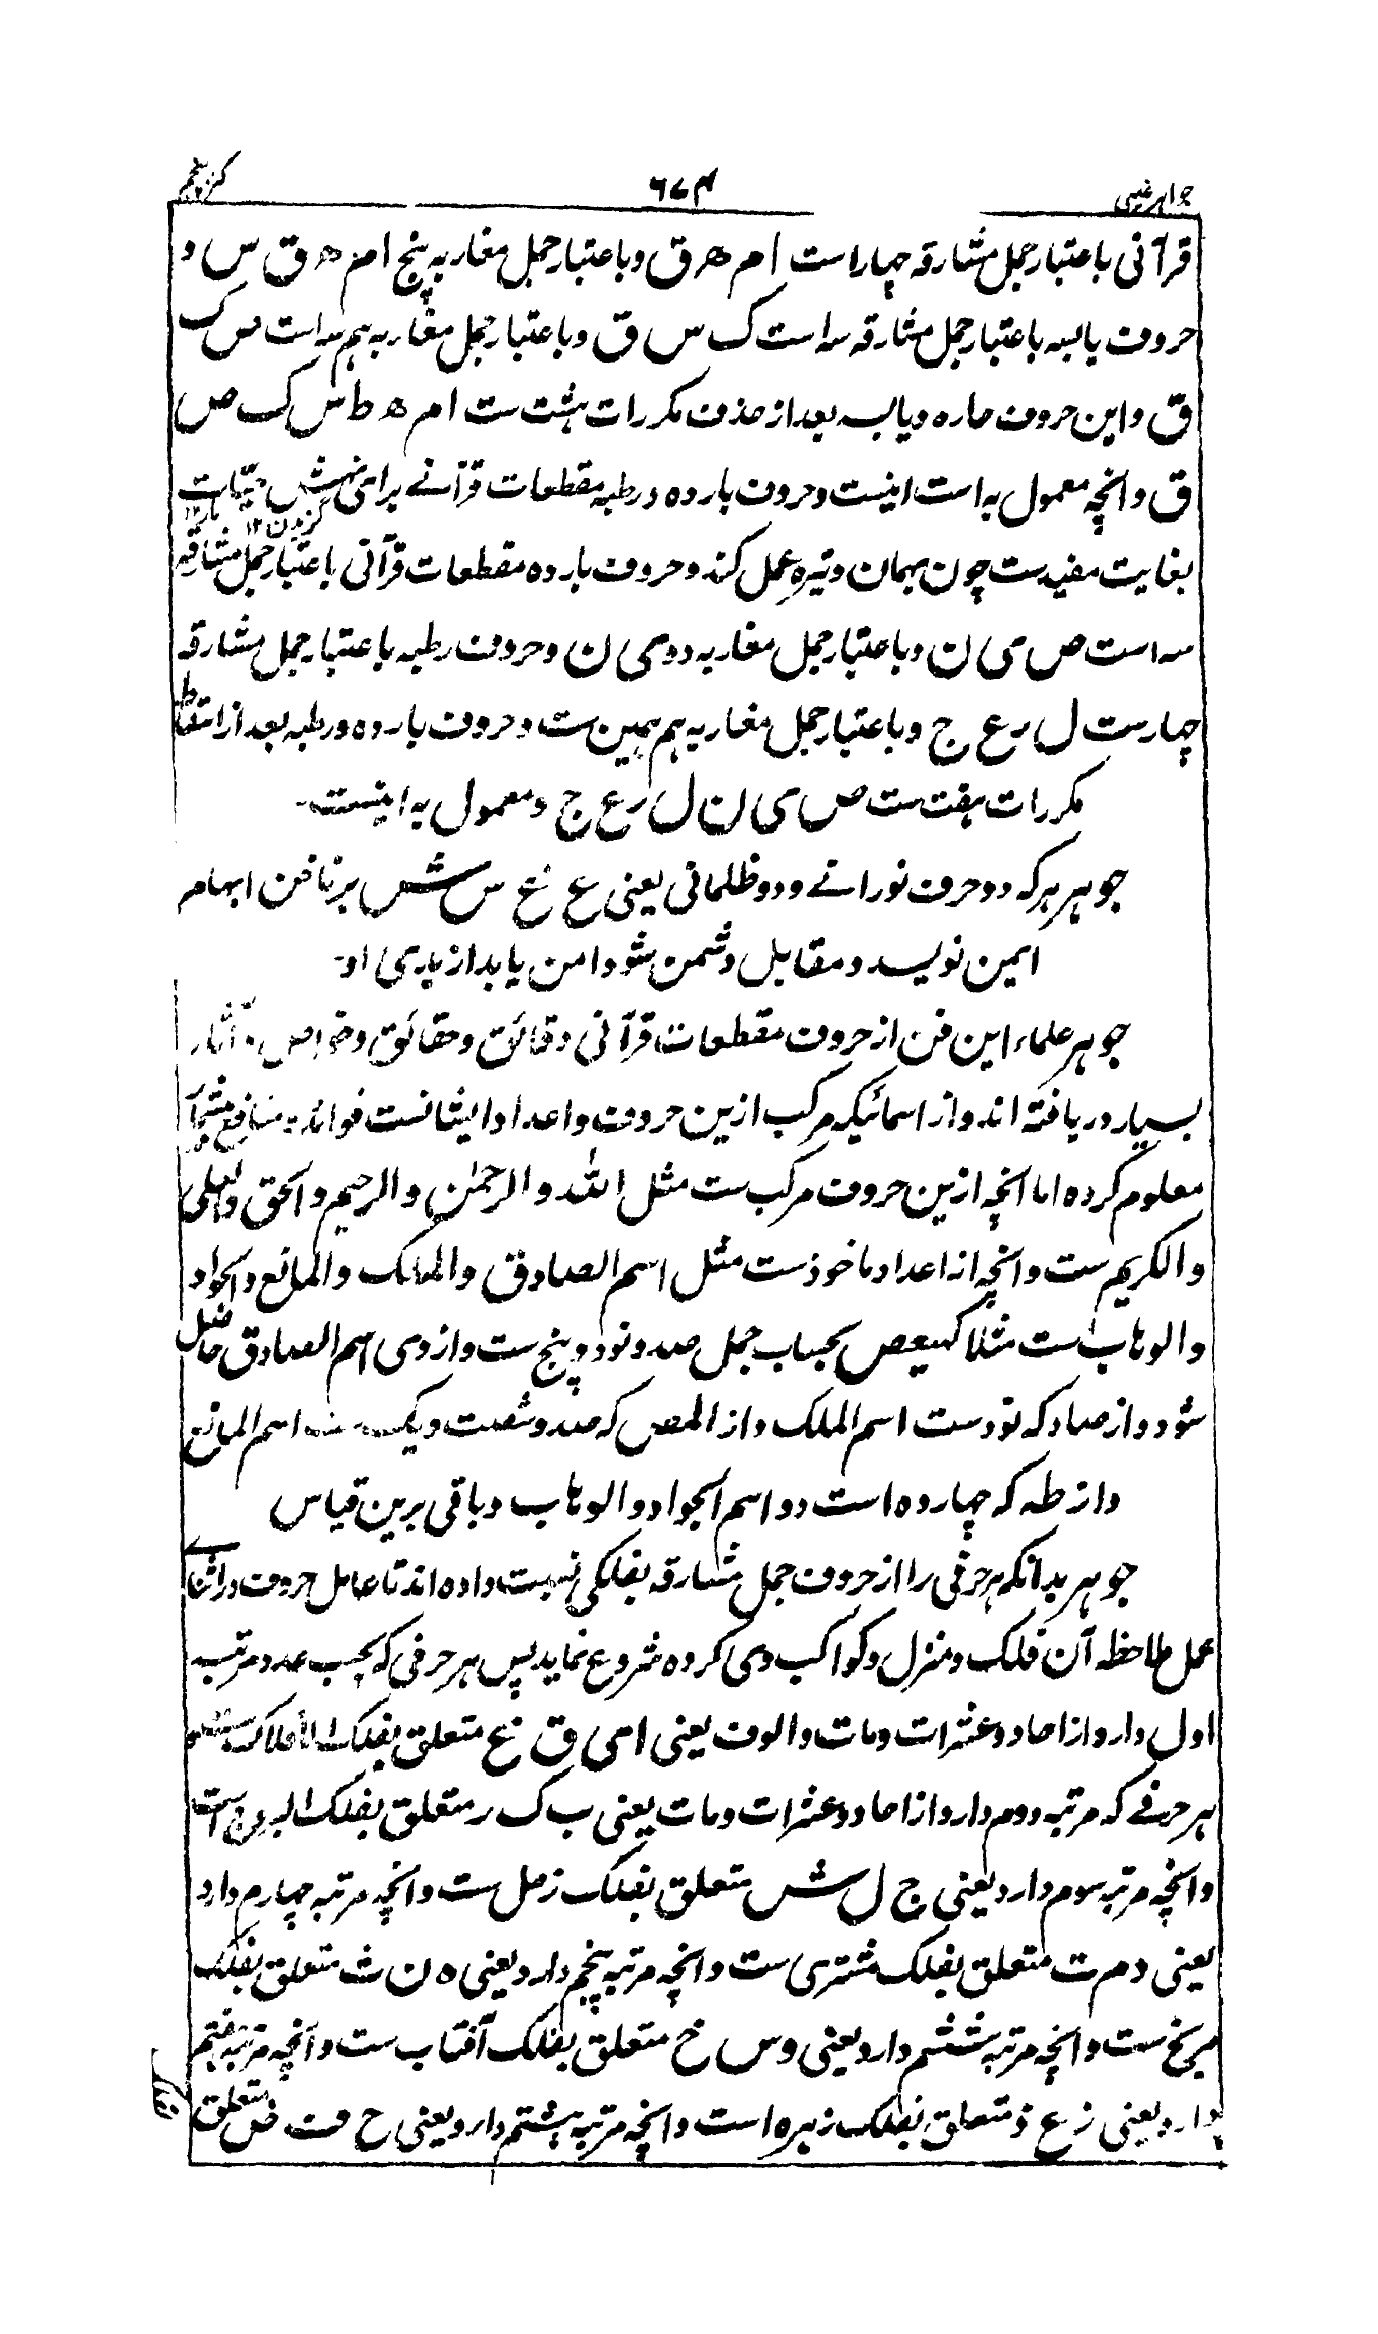 جواهر غیبی
۶۷۴
کنز پنجم
قرآنی باعتبار جمل مشارقه چهار است ا م ه ق و باعتبار جمل مغاربه پنج ا م ه ق س و
حروف یابسه باعتبار جمل مشارقه سه است ک س ق و باعتبار جمل مغاربه هم سه است س ک
ق و این حروف حاره و یابسه بعد از حذف مکررات هشت ست ا م ه ط س ک ص
ق و انچه معمول به است اینست و حروف بارده و رطبه مقطعات قرآنے برای نهش حیات
گزیدن ۱۲ مار ۱۲
بغایت مفیدست چون بهمان وتیره عمل کند و حروف بارده مقطعات قرآنی باعتبار جمل مشارقه
سه است ص ی ن و باعتبار جمل مغاربه دو ی ن و حروف رطبه باعتبار جمل مشارقه
چهارست ل ر ع ح و باعتبار جمل مغاربه هم همین ست و حروف بارده و رطبه بعد از اسقاط
مکررات هفت ست ص ی ن ل ر ع ح و معمول به اینست
جوهر هر که دو حرف نورانے و دو ظلمانی یعنی ع غ س ش بر ناخن ابهام
ایمن نویسد و مقابل دشمن شود امن یابد از بدی او
جوهر علماء این فن از حروف مقطعات قرآنی دقائق و حقائق و خواص و آثار
بسیار دریافته اند و از اسمائیکه مرکب ازین حروف و اعداد ایشانست فوائد و منافع بیشمار
معلوم کرده اما انچه ازین حروف مرکب ست مثل الله و الرحمٰن و الرحیم و الحق و العلی
و الکریم ست و انچه از اعداد ماخوذست مثل اسم الصادق و المالک و المانع و الجواد
و الوهاب است مثلا کهیعص بحساب جمل صد و نود و پنج ست و از وی اسم الصادق حاصل
شود و از صاد که نودست اسم الملک و از المص که صد و شصت و یک ست اسم المانع
و از طه که چهارده است دو اسم الجواد و الوهاب و باقی برین قیاس
جوهر بدانکه هر حرفی را از حروف جمل مشارقه بفلکی نسبت داده اند تا عامل حروف در اثنائے
عمل ملاحظه آن فلک و منزل و کواکب وی کرده شروع نماید پس هر حرفی که بحسب عدد مرتبه
اول دارد از احاد و عشرات و مات و الوف یعنی ا ی ق غ متعلق بفلک الافلاک ست و
هر حرفے که مرتبه دوم دارد از احاد و عشرات و مات یعنی ب ک ر متعلق بفلک البروج است
و انچه مرتبه سوم دارد یعنی ج ل ش متعلق بفلک زحل ست و انچه مرتبه چهارم دارد
یعنی د م ت متعلق بفلک مشتری ست و انچه مرتبه پنجم دارد یعنی ه ن ث متعلق بفلک
مریخ ست و انچه مرتبه ششم دارد یعنی و س خ متعلق بفلک آفتاب ست و انچه مرتبه هفتم
دارد یعنی ز ع ذ متعلق بفلک زهره است و انچه مرتبه هشتم دارد یعنی ح ف ض متعلق